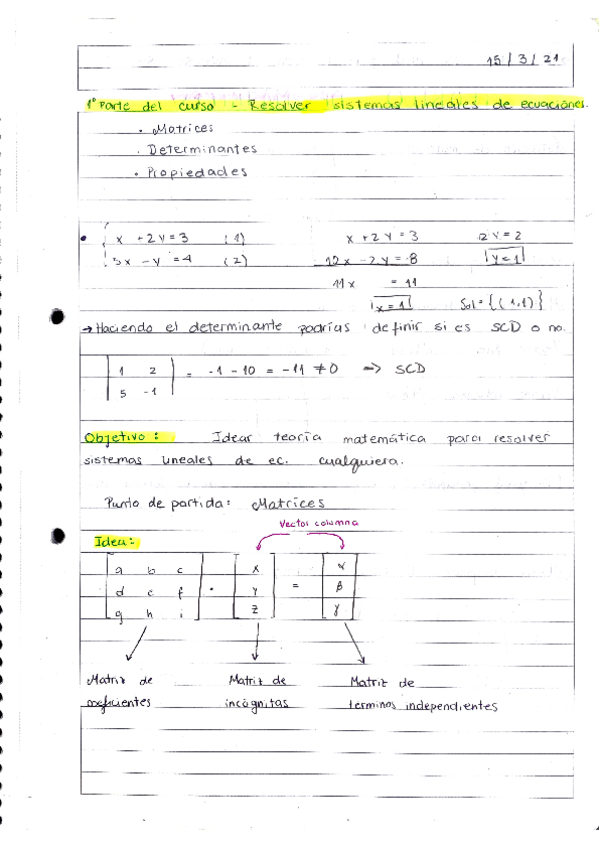 15/3/21
1° Parte del curso - Resolver sistemas lineales de ecuaciones.
• Matrices
• Determinantes
• Propiedades
• x + 2y = 3 (1) x + 2y = 3 2y = 2
5x - y = 4 (2) - 2y = 8 y = 1
11x = 11
x = 1 Sol = {(1,1)}
→ Haciendo el determinante podrías definir si es SCD o no.
1 2 = -1 - 10 = -11 ≠ 0 => SCD
5 -1
Objetivo: Idear teoría matemática para resolver
sistemas lineales de ec. cualquiera.
Punto de partida: Matrices
Vector columna
Idea:
a b c x α
d e f · y = β
g h i z γ
Matriz de Matriz de Matriz de
coeficientes incógnitas terminos independientes